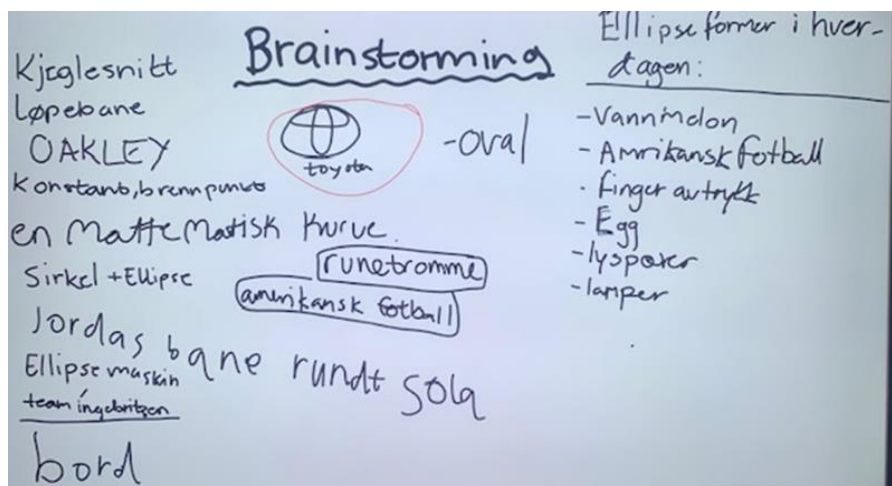 Brainstorming
Kjeglesnitt
Løpebane
OAKLEY
Konstant, brennpunkt
en Mattematisk Kurve.
Sirkel + Ellipse
Jordas bane rundt sola
Ellipse maskin
team ingebritzen
bord
toyota
-oval
runetromme
amerikansk fotball
Ellipse former i hver-
dagen:
- Vannmelon
- Amrikansk fotball
- finger avtrykk
- Egg
- lyspærer
- lamper